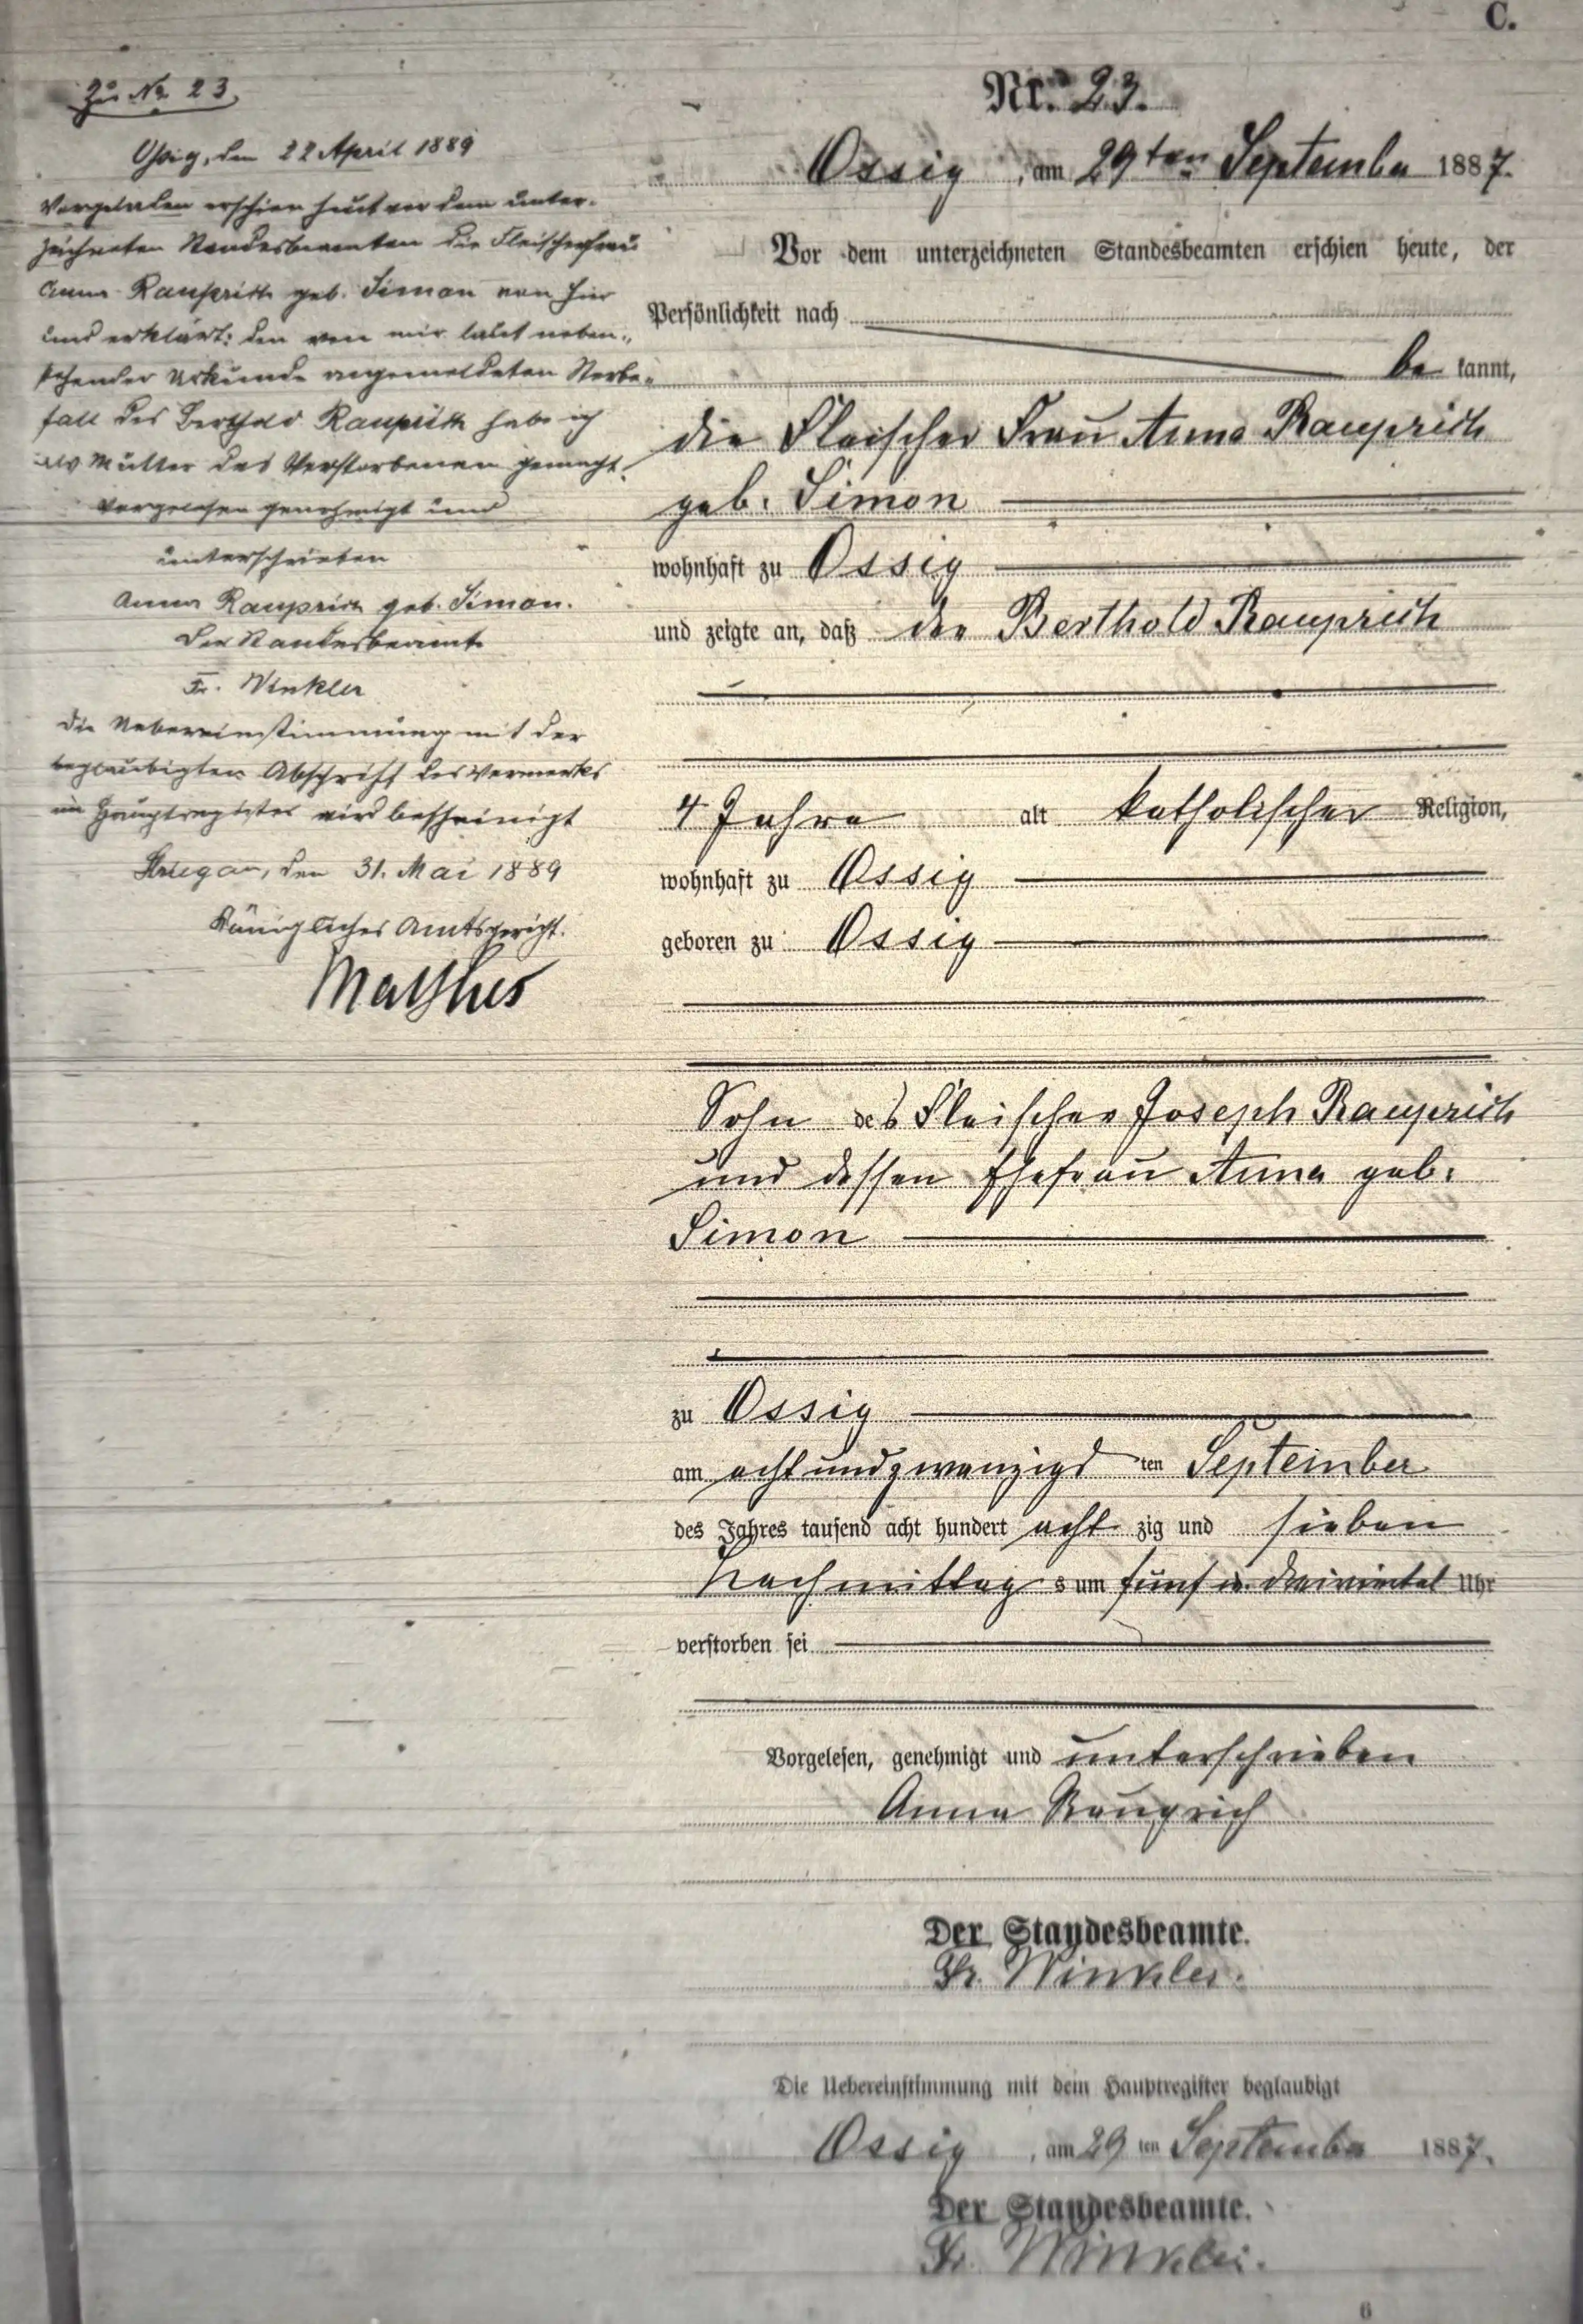 C.
Zu No 23.
Ossig, den 22 April 1889
Vorgeladen erschien heut vor dem unter-
zeichneten Standesbeamten die Fleischerfrau
Anna Rauprich geb. Simon von hier
und erklärt: den von mir laut neben-
stehender Urkunde angemeldeten Sterbe-
fall des Berthold Rauprich habe ich
als Mutter des Verstorbenen gemacht.
Vorgelesen genehmigt und
unterschrieben
Anna Rauprich geb. Simon.
Der Standesbeamte
Fr. Winkler
Die Uebereinstimmung mit der
beglaubigten Abschrift des Vermerks
im Hauptregister wird bescheinigt
Striegau, den 31. Mai 1889
Königliches Amtsgericht.
Nr. 23.
Ossig, am 29ten September 1887.
Vor dem unterzeichneten Standesbeamten erschien heute, der
Persönlichkeit nach
be kannt,
die Fleischer Frau Anna Rauprich
geb. Simon
wohnhaft zu Ossig
und zeigte an, daß der Berthold Rauprich
4 Jahre alt katholischer Religion,
wohnhaft zu Ossig
geboren zu Ossig
Sohn des Fleischer Joseph Rauprich
und dessen Ehefrau Anna geb.
Simon
zu Ossig
am achtundzwanzigs ten September
des Jahres tausend acht hundert acht zig und sieben
Nachmittag s um fünf u. dreiviertel Uhr
verstorben sei
Vorgelesen, genehmigt und unterschrieben
Anna Rauprich
Der Standesbeamte.
Fr. Winkler.
Die Uebereinstimmung mit dem Hauptregister beglaubigt
Ossig, am 29 ten September 1887.
Der Standesbeamte.
Fr. Winkler.
6